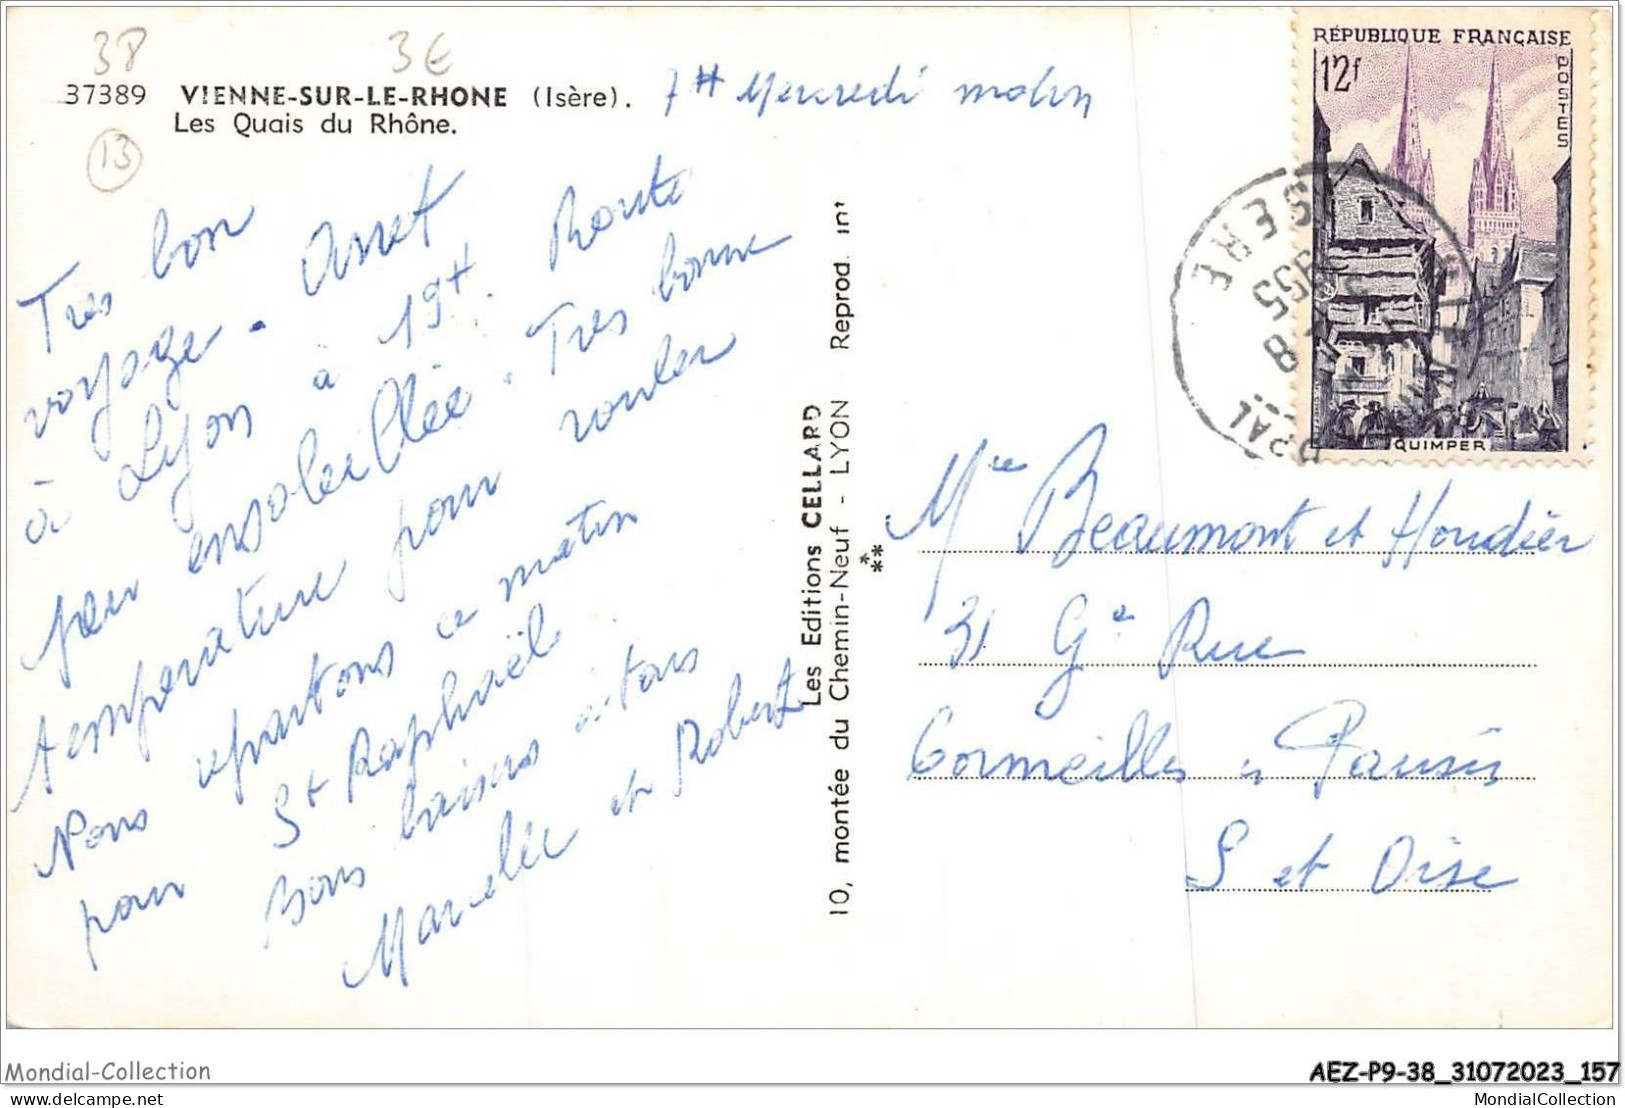 38
3€
37389 VIENNE-SUR-LE-RHONE (Isère).
Les Quais du Rhône.
13
7H Mercredi matin
Très bon
voyage. Arret
à Lyon à 19H. Route
peu ensoleillée. Très bonne
température pour rouler
Nous repartons ce matin
pour St Raphaël
Bons baisers à tous
Marcelle et Robert
Les Editions CELLARD
10, montée du Chemin-Neuf - LYON Reprod. int
RÉPUBLIQUE FRANÇAISE
12f
POSTES
QUIMPER
ISERE
1955
Beaumont et Houdier
31 Gde Rue
Cormeilles en Parisis
S et Oise
Mondial-Collection
AEZ-P9-38_31072023_157
delcampe.net
MondialCollection